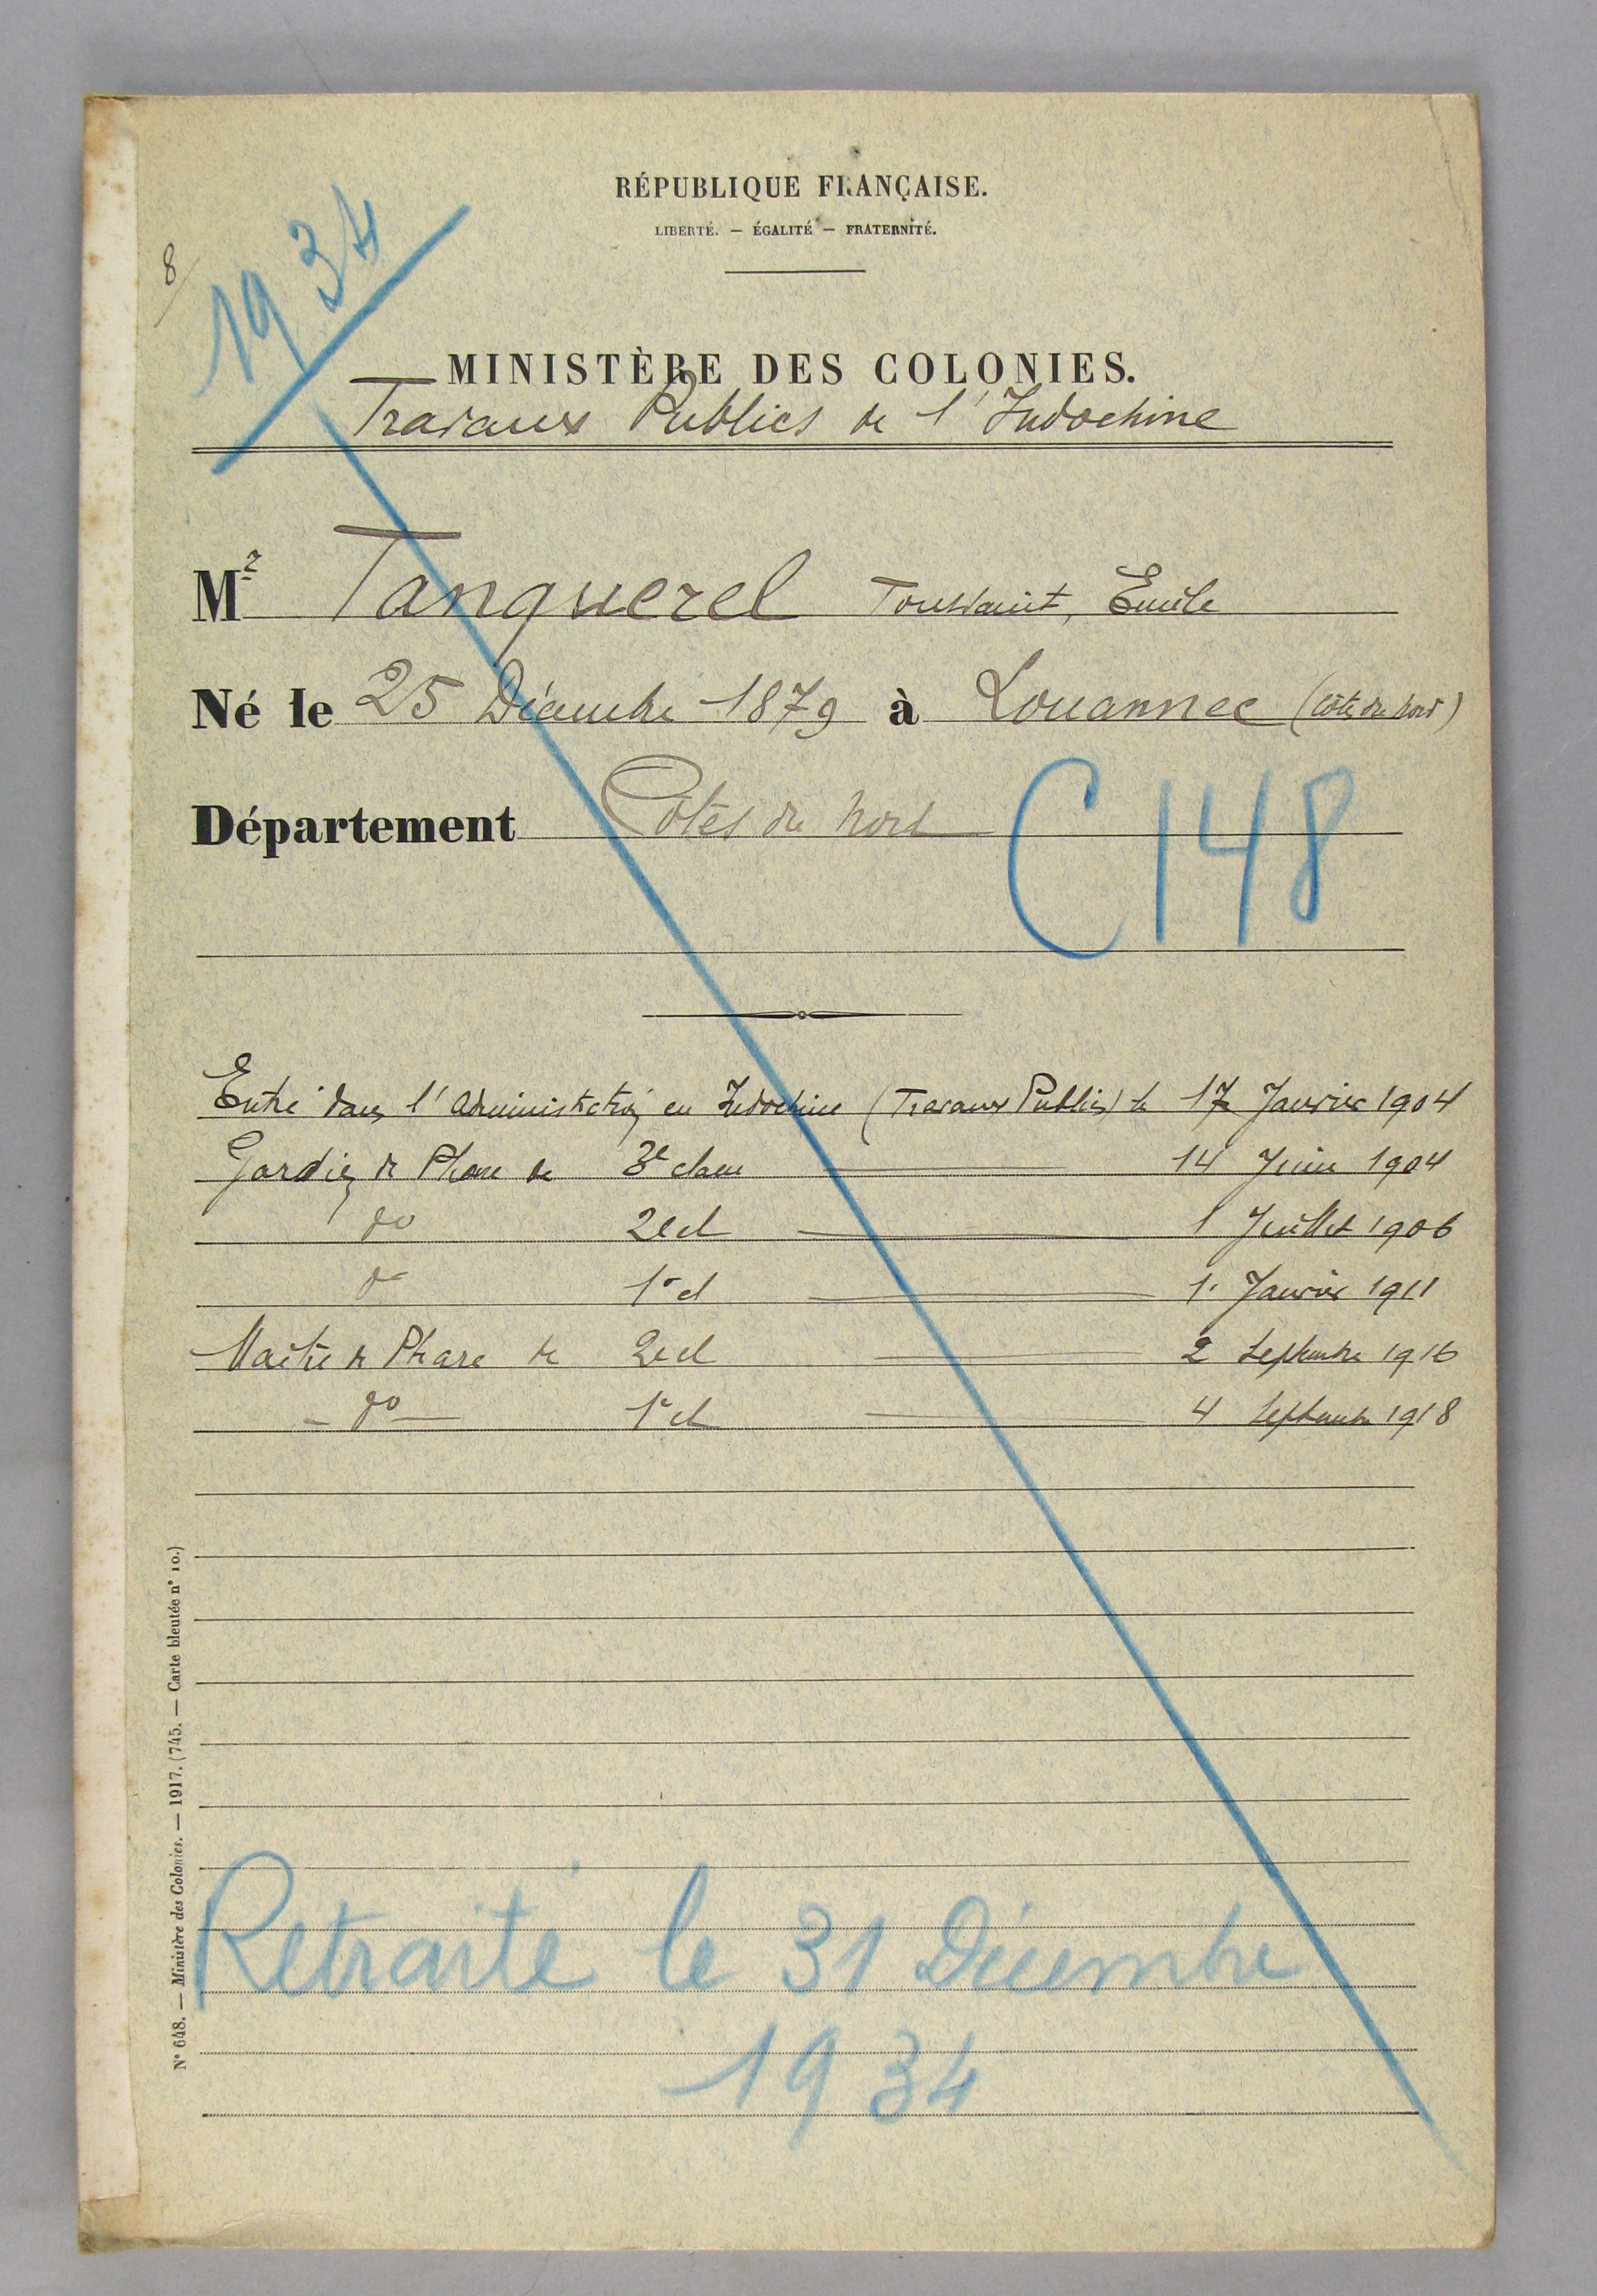 RÉPUBLIQUE FRANÇAISE.
LIBERTÉ. — ÉGALITÉ — FRATERNITÉ.
8/
1934
MINISTÈRE DES COLONIES.
Travaux Publics de l'Indochine
Mr Tanquerel Toussaint, Emile
Né le 25 Décembre 1879 à Louannec (Côtes du Nord)
Département Côtes du Nord
C148
Entré dans l'administration en Indochine (Travaux Publics) le 17 Janvier 1904
Gardien de Phare de 3e classe 14 Juin 1904
do 2e cl 1 Juillet 1906
do 1e cl 1. Janvier 1911
Maître de Phare de 2e cl 2 Septembre 1916
do 1e cl 4 Septembre 1918
Retraité le 31 Décembre
1934
N° 648. — Ministère des Colonies. — 1917. (745. — Carte bleutée n° 10.)